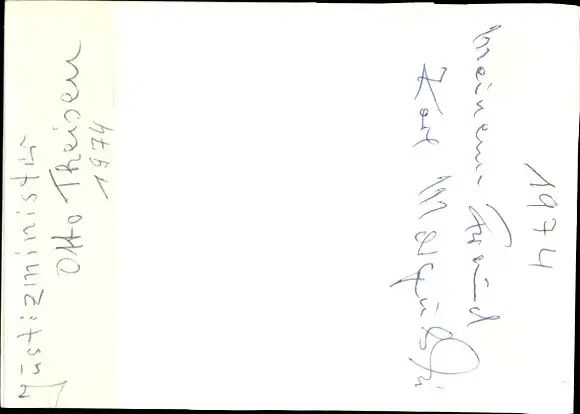 Justizminister
Otto Theisen
1974
1974
meinem Freund
Karl